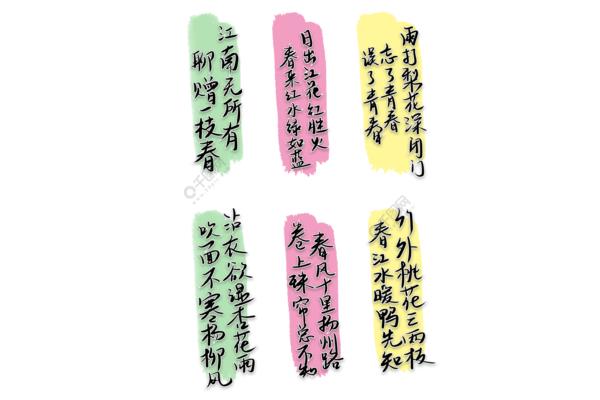 江南无所有
聊赠一枝春
日出江花红胜火
春来江水绿如蓝
雨打梨花深闭门
忘了青春
误了青春
沾衣欲湿杏花雨
吹面不寒杨柳风
春风十里扬州路
卷上珠帘总不如
竹外桃花三两枝
春江水暖鸭先知